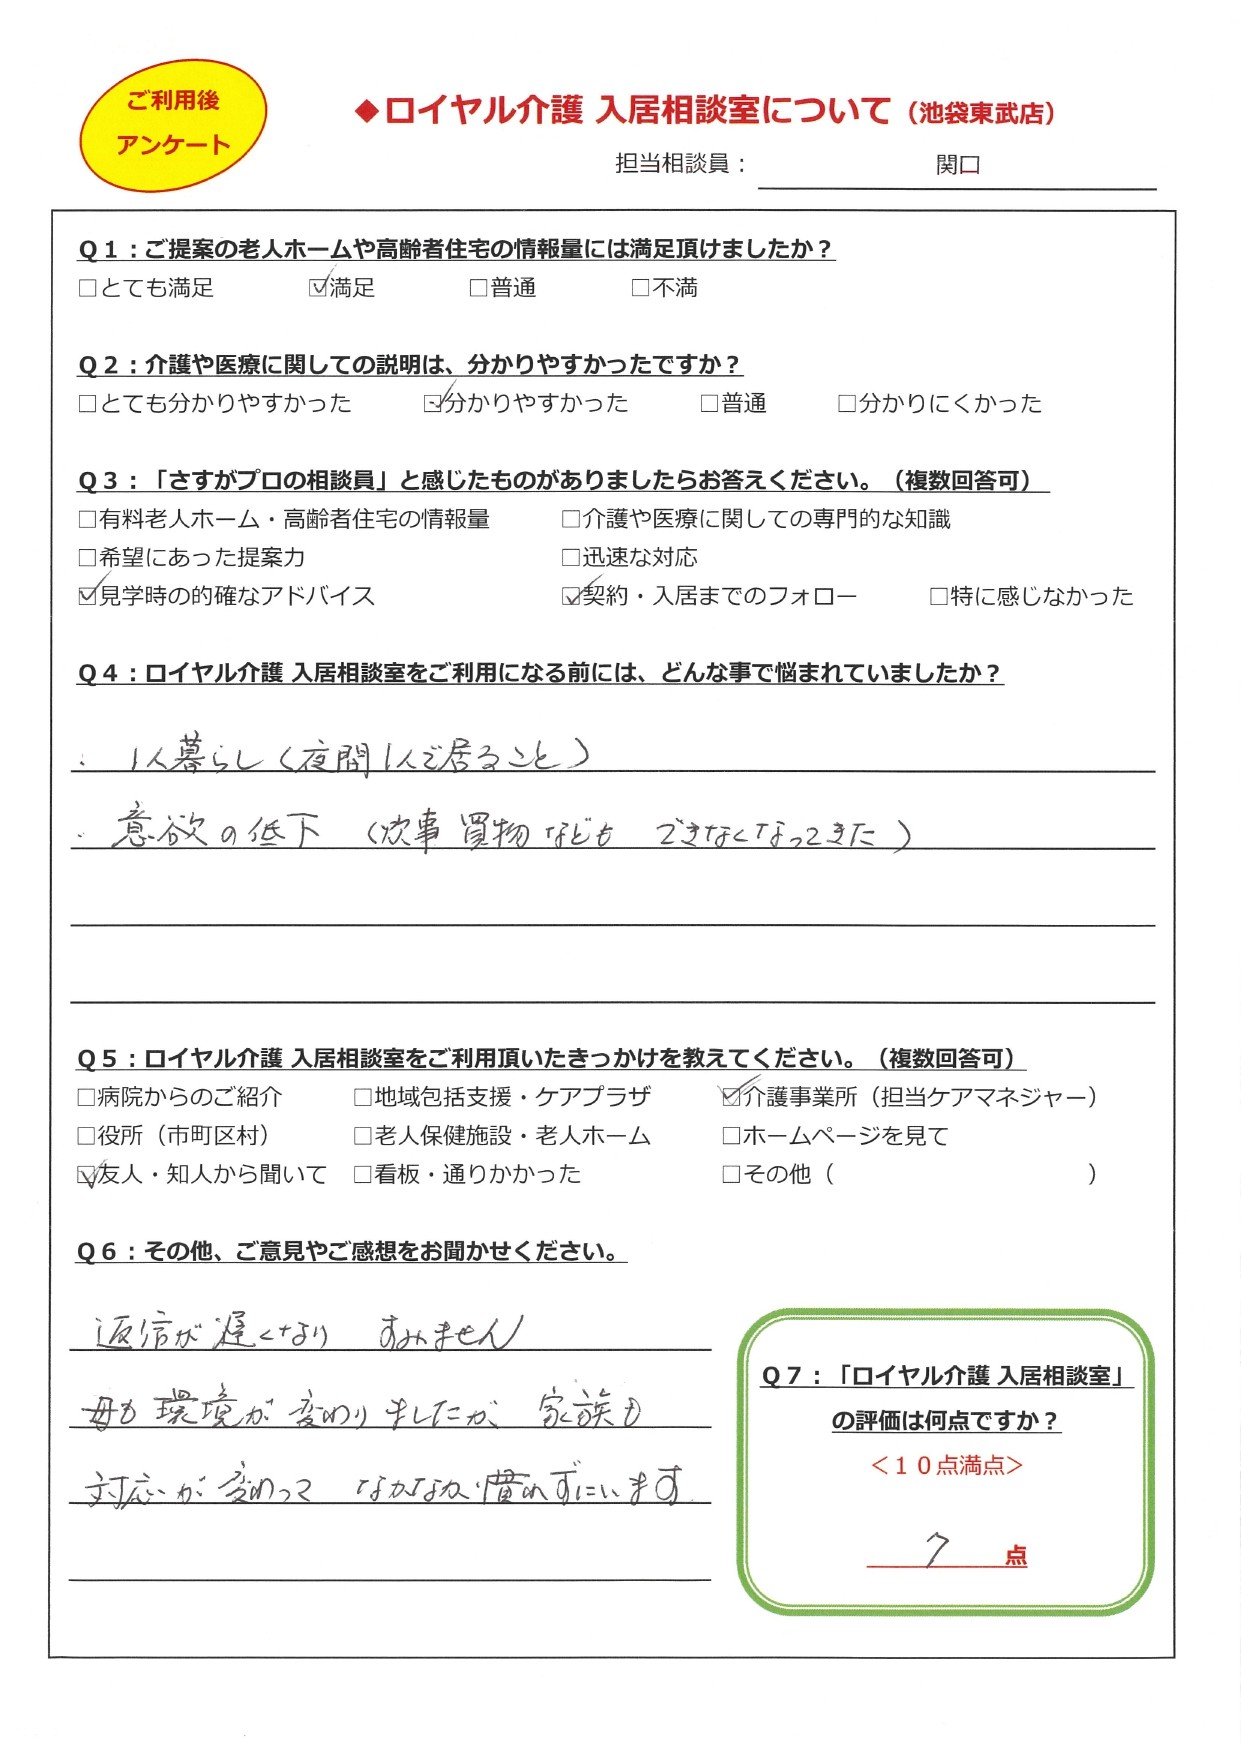 ご利用後
アンケート
◆ロイヤル介護 入居相談室について（池袋東武店）
担当相談員： 関口
Ｑ１：ご提案の老人ホームや高齢者住宅の情報量には満足頂けましたか？
□とても満足 ☑満足 □普通 □不満
Ｑ２：介護や医療に関しての説明は、分かりやすかったですか？
□とても分かりやすかった ☑分かりやすかった □普通 □分かりにくかった
Ｑ３：「さすがプロの相談員」と感じたものがありましたらお答えください。（複数回答可）
□有料老人ホーム・高齢者住宅の情報量 □介護や医療に関しての専門的な知識
□希望にあった提案力 □迅速な対応
☑見学時の的確なアドバイス ☑契約・入居までのフォロー □特に感じなかった
Ｑ４：ロイヤル介護 入居相談室をご利用になる前には、どんな事で悩まれていましたか？
・ 1人暮らし（夜間1人で居ること）
・ 意欲の低下 （炊事 買物なども できなくなってきた）
Ｑ５：ロイヤル介護 入居相談室をご利用頂いたきっかけを教えてください。（複数回答可）
□病院からのご紹介 □地域包括支援・ケアプラザ ☑介護事業所（担当ケアマネジャー）
□役所（市町区村） □老人保健施設・老人ホーム □ホームページを見て
☑友人・知人から聞いて □看板・通りかかった □その他（ ）
Ｑ６：その他、ご意見やご感想をお聞かせください。
返信が遅くなり すみません
母も環境が変わりましたが、家族も
対応が変わって なかなか慣れずにいます
Ｑ７：「ロイヤル介護 入居相談室」
の評価は何点ですか？
＜１０点満点＞
7 点